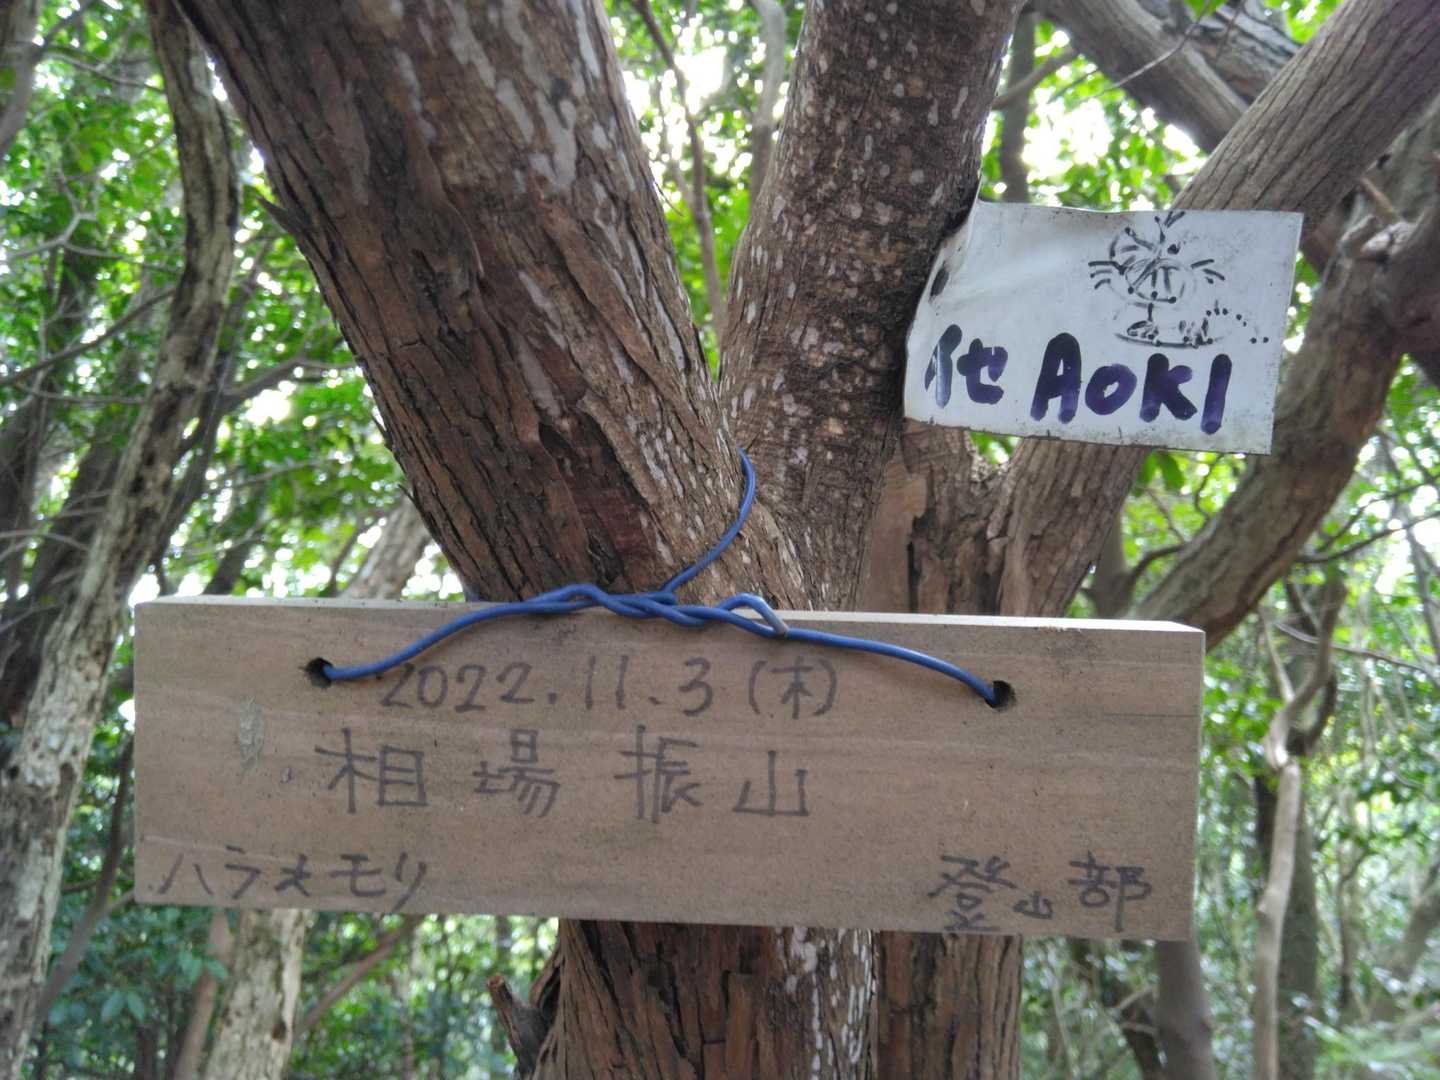 AOKI
2022.11.3(木)
相場振山
ハラメモリ
登山部